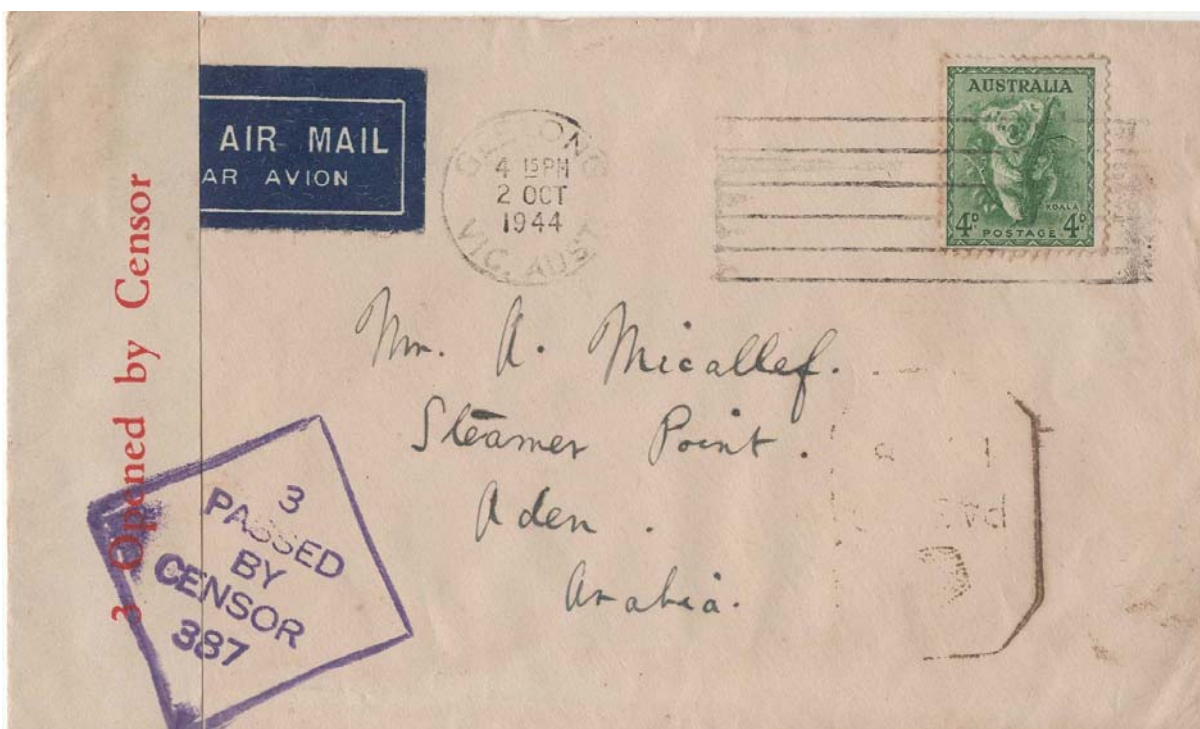 3 Opened by Censor
AIR MAIL
AR AVION
GEELONG
4 15 PM
2 OCT
1944
VIC. AUST
AUSTRALIA
KOALA
4D POSTAGE 4D
Mr. A. Micallef.
Steamer Point.
Aden.
Arabia.
3
PASSED
BY
CENSOR
387